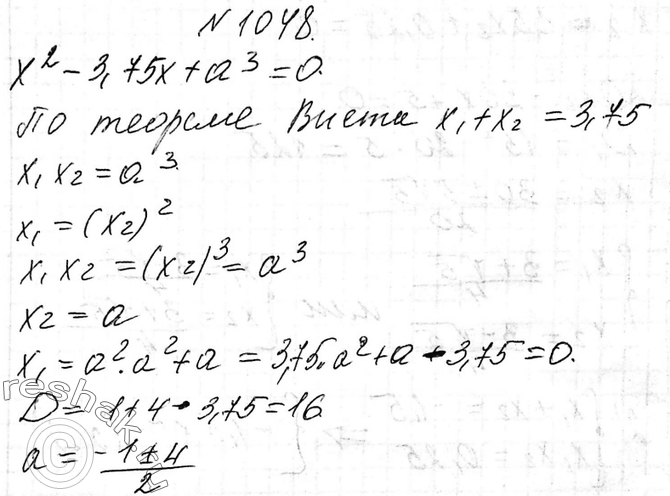 №1048.
x² - 3,75x + a³ = 0.
По теореме Виета x₁ + x₂ = 3,75
x₁ x₂ = a³.
x₁ = (x₂)²
x₁ x₂ = (x₂)³ = a³
x₂ = a
x₁ = a². a² + a = 3,75. a² + a - 3,75 = 0.
D = 1 + 4 · 3,75 = 16
a = (-1 ± 4)/2
reshak.ru